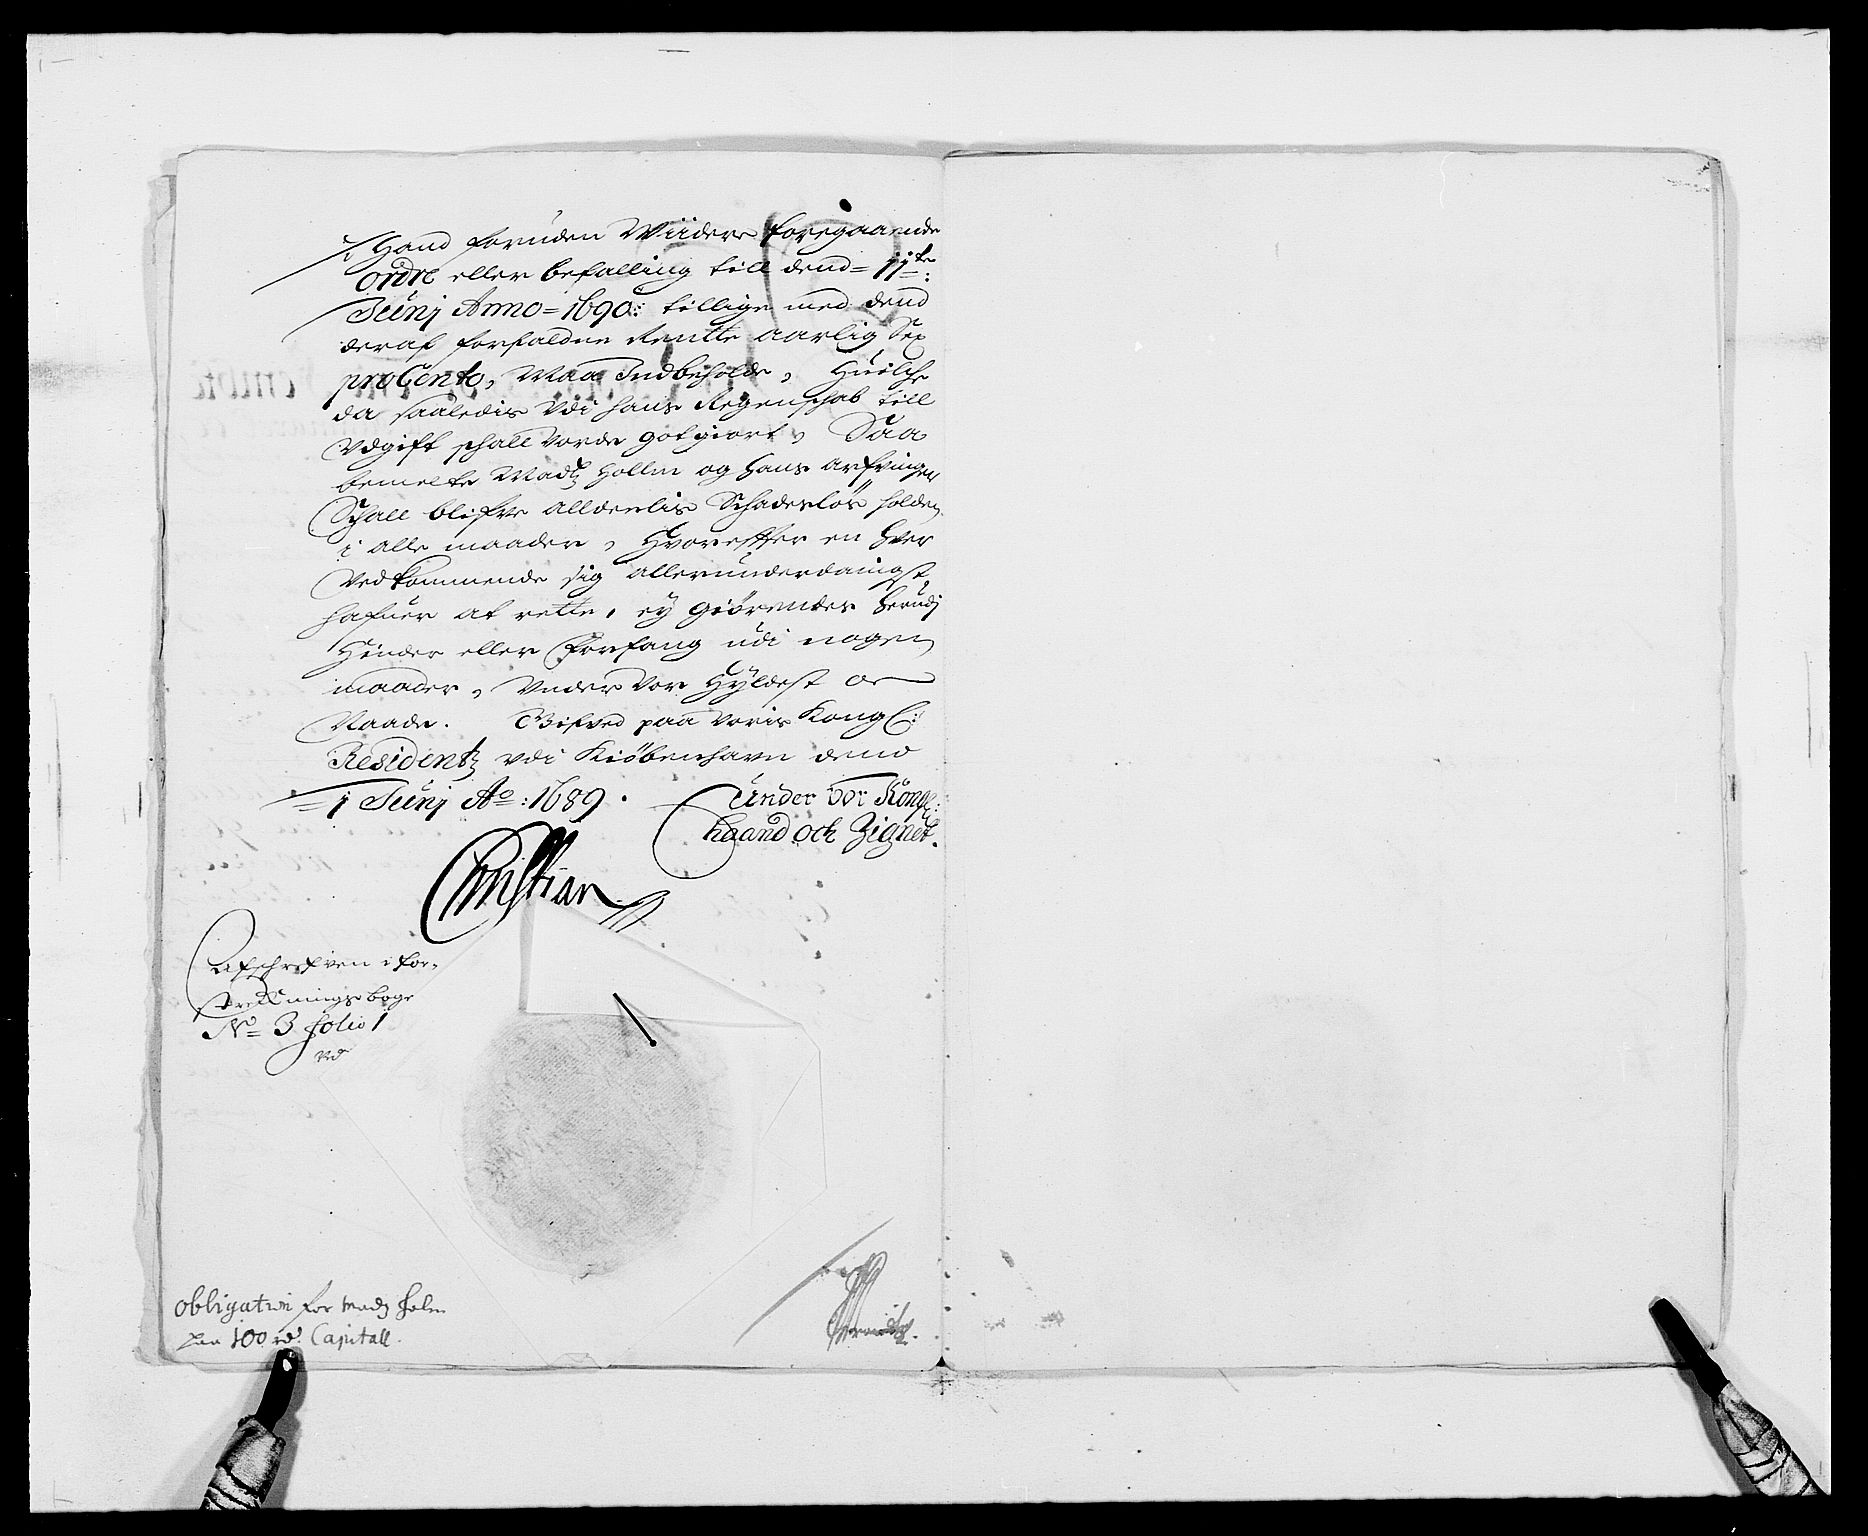 Hand foruden Wiidere foregaaende
ordre eller befalling till dend = 11te:
Junj Anno = 1690: tillige med dend
deraf forfaldne Rentte aarlig Sex
proCento, Maa Indbeholde, Huilche
da saaledis Vdi hans Regenschab till
Vdgift schall vorde gotgiort, Saa
bemelte Madtz Hollm og hans arfvinger
Schall blifve alldeelis Schadesløs holden
i alle maader, Hvorefter en hver
Vedkommende sig allerunderdanigst
hafuer at rette, ey giørendes herudj
Hinder eller Forfang udi nogen
maader, Vnder Vor Hyldest oc
Naade. Gifved paa voris Kongl:
Residentz vdi Kiøbenhavn dend
= 1 Junj Ao: 1689.
Under vor Kongl:
haand och Zignet.
Christian
Afschrefven i for-
No= 3 folio 1
obligation for Madz Holm
paa 100 rd. Capitall.